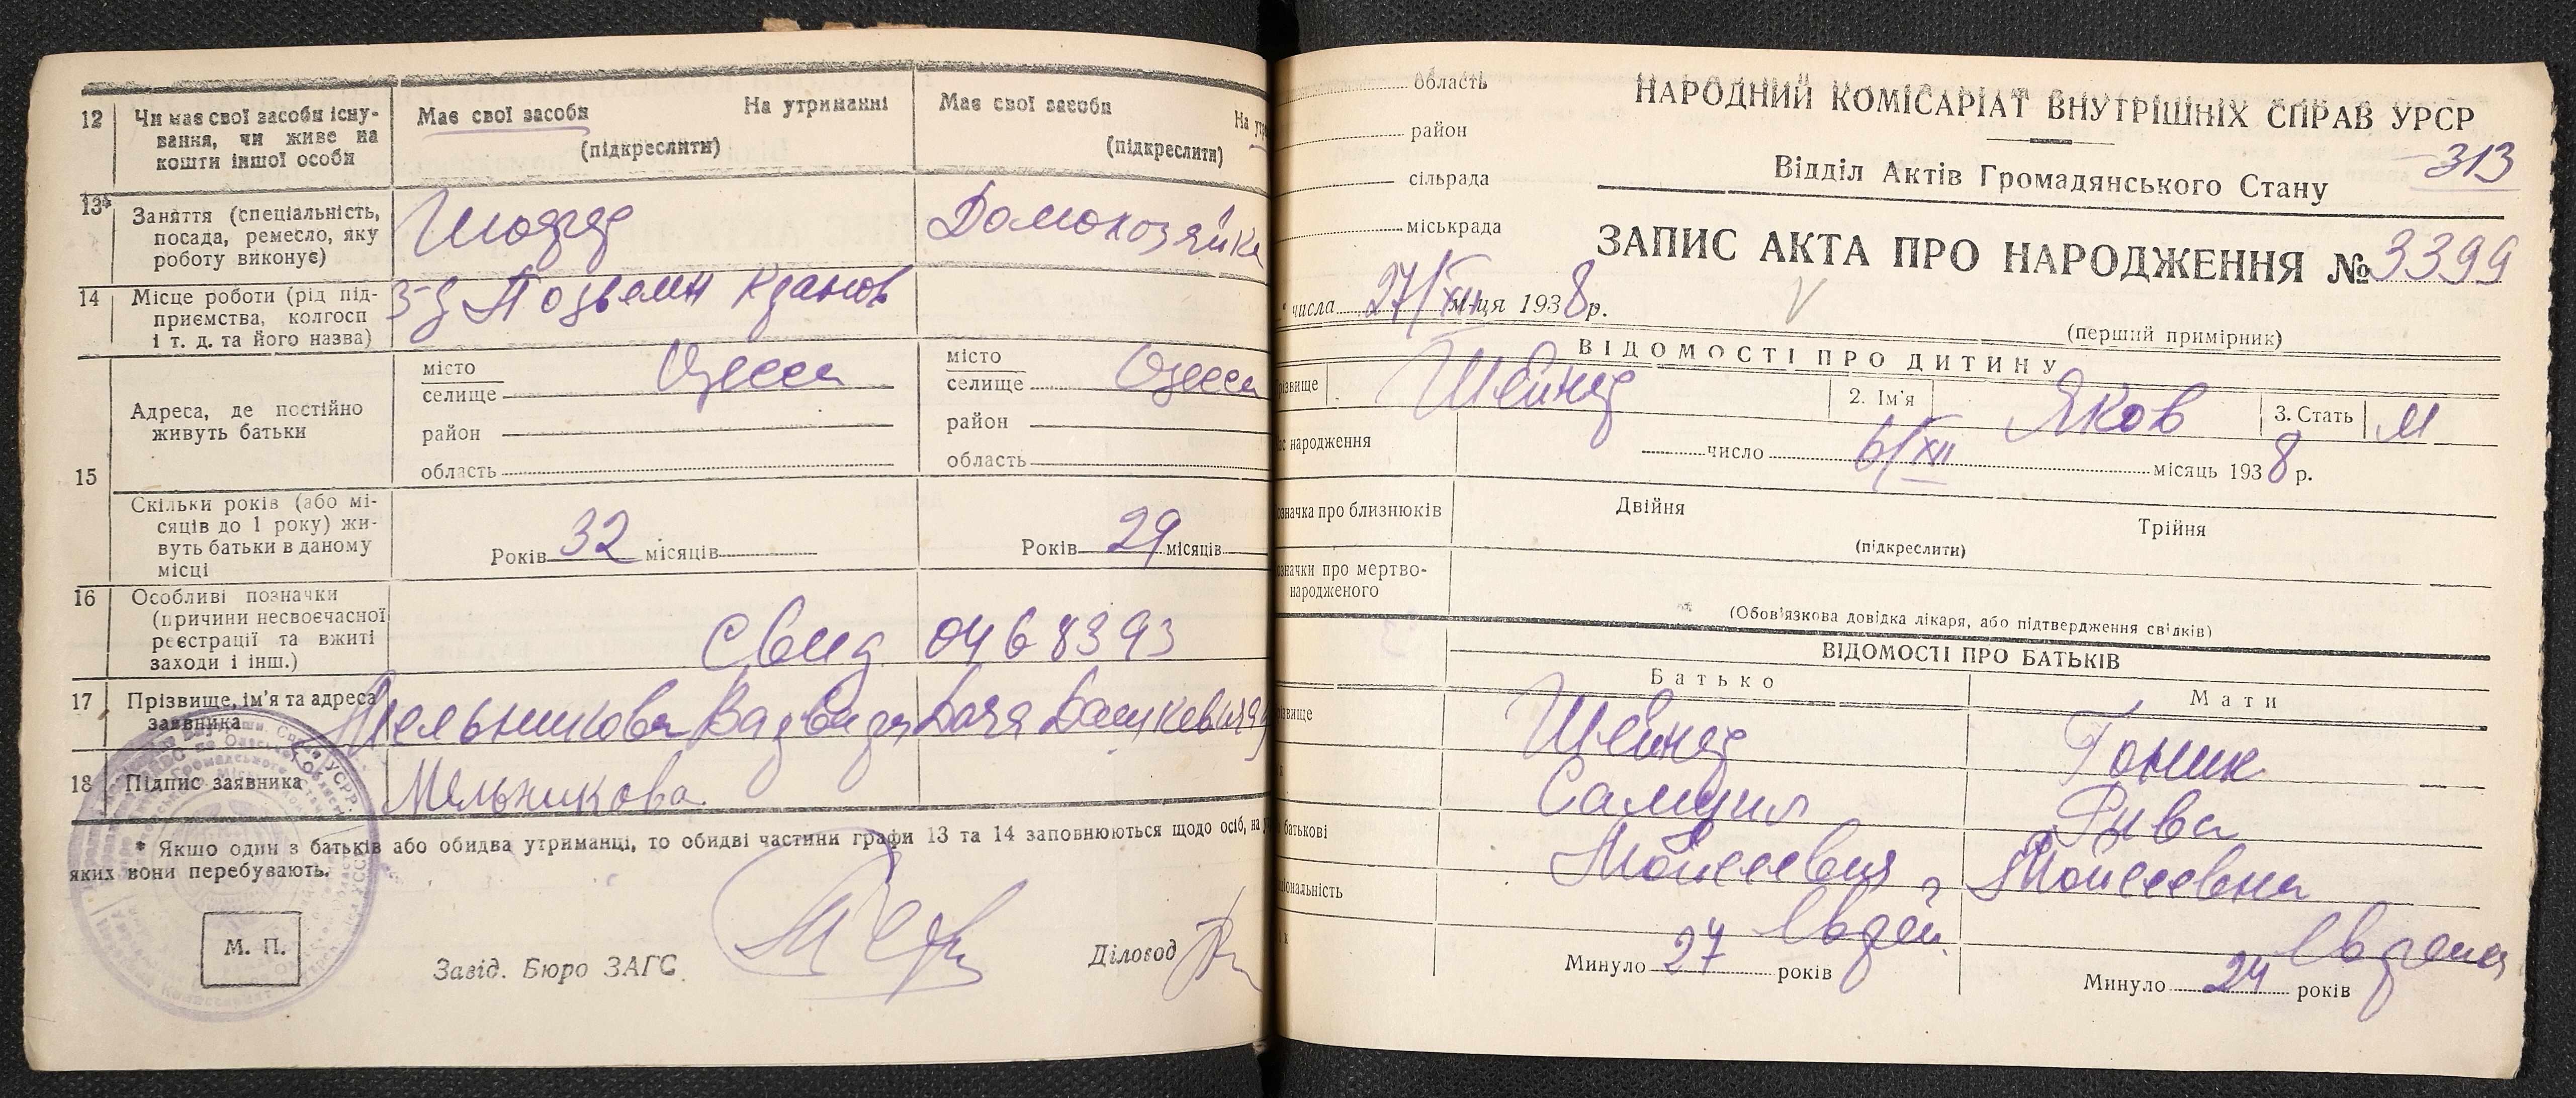 12 Чи має свої засоби існування, чи живе на кошти іншої особи
Має свої засоби На утриманні
(підкреслити)
Має свої засоби На утр
(підкреслити)
13* Заняття (спеціальність, посада, ремесло, яку роботу виконує)
Домохозяйка
14 Місце роботи (рід підприємства, колгосп і т. д. та його назва)
з-д
15 Адреса, де постійно живуть батьки
місто
селище Одесса
район
область
місто
селище Одесса
район
область
Скільки років (або місяців до 1 року) живуть батьки в даному місці
Років 32 місяців
Років 29 місяців
16 Особливі позначки (причини несвоєчасної реєстрації та вжиті заходи і інш.)
Свид 0468393
17 Прізвище, ім'я та адреса заявника
Мельникова
18 Підпис заявника
Мельникова
* Якщо один з батьків або обидва утриманці, то обидві частини графи 13 та 14 заповнюються щодо осіб, на
яких вони перебувають.
М. П.
Завід. Бюро ЗАГС
Діловод
область
район
сільрада
міськрада
НАРОДНИЙ КОМІСАРІАТ ВНУТРІШНІХ СПРАВ УРСР
313
Відділ Актів Громадянського Стану
ЗАПИС АКТА ПРО НАРОДЖЕННЯ № 3399
числа 27/XII м-ця 1938 р.
(перший примірник)
ВІДОМОСТІ ПРО ДИТИНУ
різвище 2. Ім'я Яков 3. Стать М
с народження число 6/XII місяць 1938 р.
означка про близнюків Двійня Трійня
(підкреслити)
означки про мертвонародженого
(Обов'язкова довідка лікаря, або підтвердження свідків)
ВІДОМОСТІ ПРО БАТЬКІВ
Батько Мати
ізвище Гоник
я Самуил Рыва
батькові Мойсеевич Мойсеевна
ціональність Еврей Еврейка
к Минуло 27 років Минуло 24 років